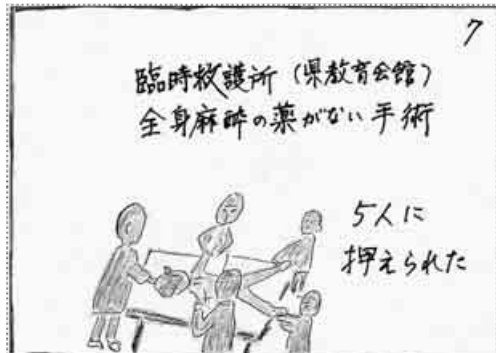 7
臨時救護所（県教育会館）
全身麻酔の薬がない手術
5人に
押えられた